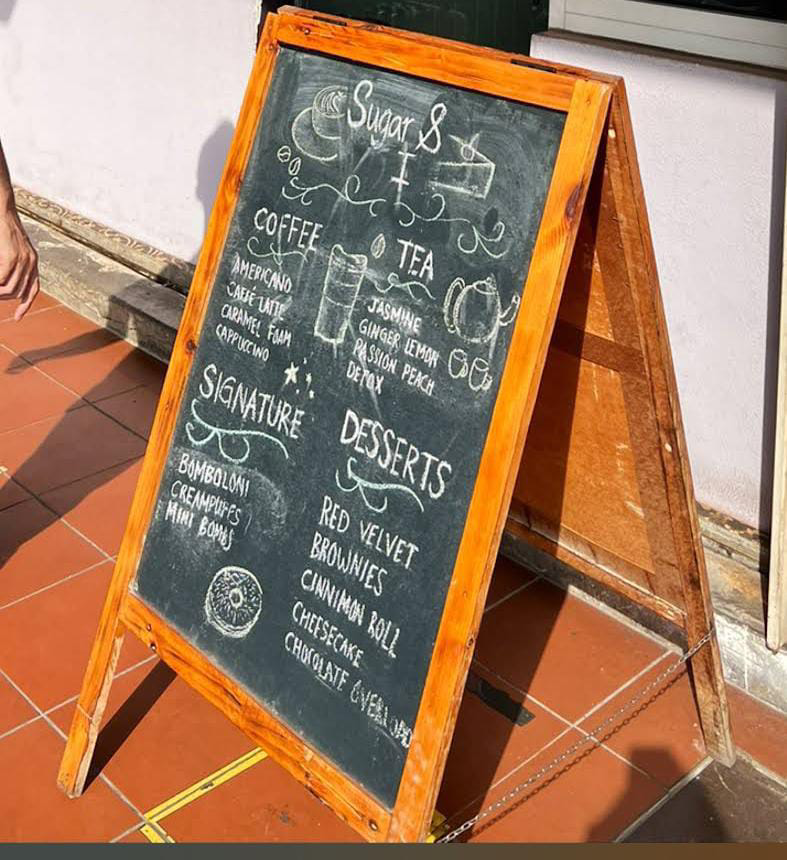 Sugar &
I
COFFEE
AMERICANO
CAFFÉ LATTE
CARAMEL FOAM
CAPPUCCINO
TEA
JASMINE
GINGER LEMON
PASSION PEACH
DETOX
SIGNATURE
BOMBOLONI
CREAMPUFFS
MINI BOMBS
DESSERTS
RED VELVET
BROWNIES
CINNIMON ROLL
CHEESECAKE
CHOCOLATE OVERLOAD